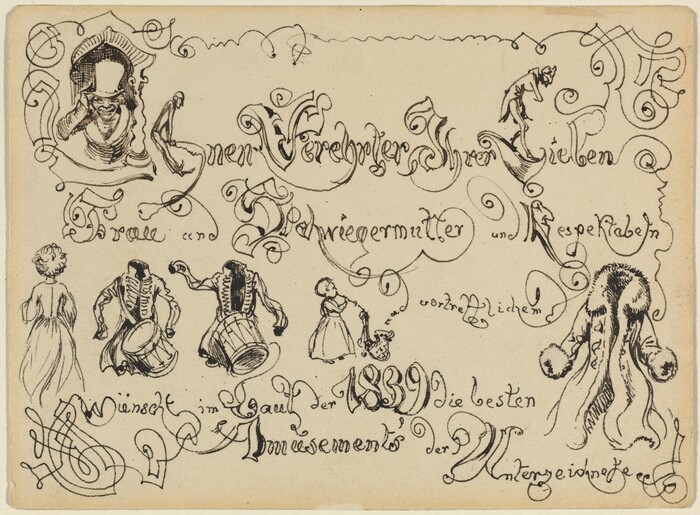 Ihnen Verehrter, Ihrer Lieben
Frau und Schwiegermutter und Respektabeln
vortrefflichem
Wünscht im Lauf der 1839 die besten
Amusements der Unterzeichnete